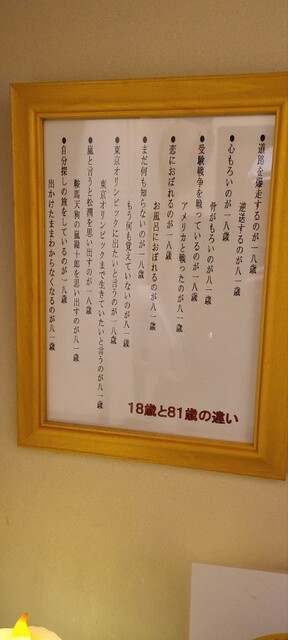 ●道路を爆走するのが一八歳
逆送するのが八一歳
●心もろいのが一八歳
骨がもろいのが八一歳
●受験戦争を戦っているのが一八歳
アメリカと戦ったのが八一歳
●恋におぼれるのが一八歳
お風呂におぼれるのが八一歳
●まだ何も知らないのが一八歳
もう何も覚えていないのが八一歳
●東京オリンピックに出たいと言うのが一八歳
東京オリンピックまで生きていたいと言うのが八一歳
●嵐と言うと松潤を思い出すのが一八歳
鞍馬天狗の嵐寛十郎を思い出すのが八一歳
●自分探しの旅をしているのが一八歳
出かけたままわからなくなるのが八一歳
18歳と81歳の違い